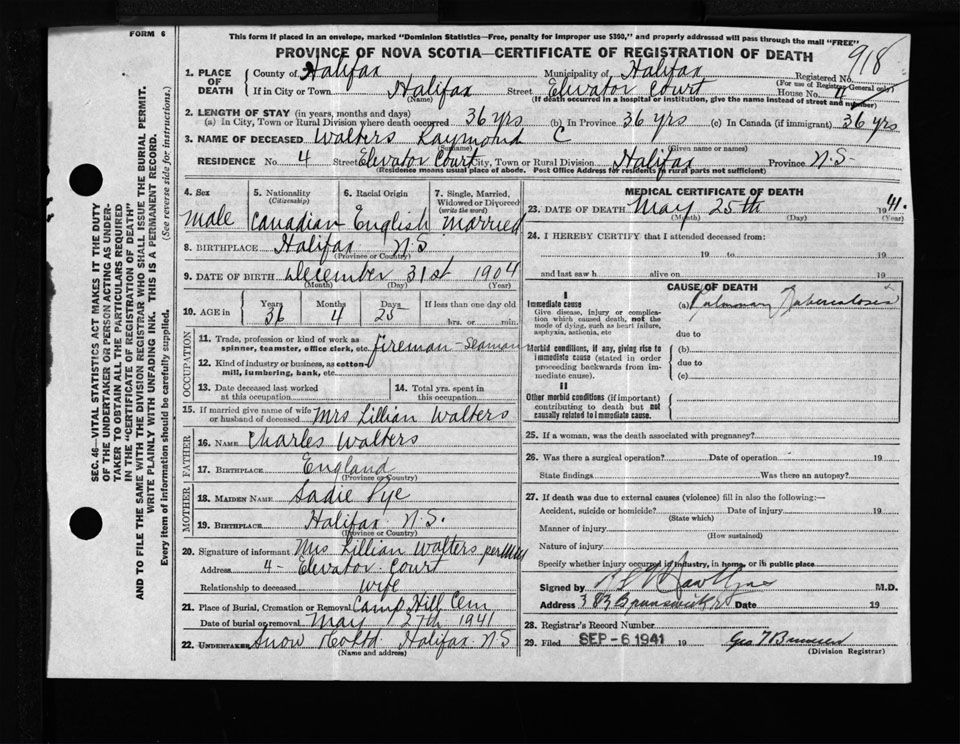 FORM 6
This form if placed in an envelope, marked "Dominion Statistics—Free, penalty for improper use $300," and properly addressed will pass through the mail "FREE"
PROVINCE OF NOVA SCOTIA—CERTIFICATE OF REGISTRATION OF DEATH
918
1. PLACE OF DEATH
County of Halifax Municipality of Halifax Registered No.
(For use of Registrar-General only)
If in City or Town Halifax Street Elevator Court House No. 4
(Name) (If death occurred in a hospital or institution, give the name instead of street and number)
2. LENGTH OF STAY (in years, months and days)
(a) In City, Town or Rural Division where death occurred 36 yrs (b) In Province 36 yrs (c) In Canada (if immigrant) 36 yrs
3. NAME OF DECEASED Walters Raymond C
(Surname) (Given name or names)
RESIDENCE No. 4 Street Elevator Court City, Town or Rural Division Halifax Province N.S.
(Residence means usual place of abode. Post Office Address for residents in rural parts not sufficient)
4. Sex
male
5. Nationality
(Citizenship)
Canadian
6. Racial Origin
English
7. Single, Married, Widowed or Divorced
(write the word)
Married
8. BIRTHPLACE Halifax N.S
(Province or Country)
9. DATE OF BIRTH December 31st 1904
(Month) (Day) (Year)
10. AGE in
Years 36
Months 4
Days 25
If less than one day old
hrs. or min.
OCCUPATION
11. Trade, profession or kind of work as spinner, teamster, office clerk, etc. Fireman - Seaman
12. Kind of industry or business, as cotton-mill, lumbering, bank, etc.
13. Date deceased last worked at this occupation
14. Total yrs. spent in this occupation
15. If married give name of wife or husband of deceased Mrs Lillian Walters
FATHER
16. NAME Charles Walters
17. BIRTHPLACE England
(Province or Country)
MOTHER
18. MAIDEN NAME Sadie Pye
19. BIRTHPLACE Halifax N.S.
(Province or Country)
20. Signature of informant Mrs Lillian Walters per
Address 4 - Elevator Court
Relationship to deceased wife
21. Place of Burial, Cremation or Removal Camp Hill Cem
Date of burial or removal May 27th 1941
22. UNDERTAKER Snow Co Ltd Halifax N.S
(Name and address)
MEDICAL CERTIFICATE OF DEATH
23. DATE OF DEATH May 25th 1941.
(Month) (Day) (Year)
24. I HEREBY CERTIFY that I attended deceased from:
19 to 19
and last saw h alive on 19
CAUSE OF DEATH
I
Immediate cause
Give disease, injury or complication which caused death, not the mode of dying, such as heart failure, asphyxia, asthenia, etc
(a) Pulmonary Tuberculosis
due to
Morbid conditions, if any, giving rise to immediate cause (stated in order proceeding backwards from immediate cause).
(b)
due to
(c)
II
Other morbid conditions (if important) contributing to death but not causally related to immediate cause.
25. If a woman, was the death associated with pregnancy?
26. Was there a surgical operation? Date of operation 19
State findings Was there an autopsy?
27. If death was due to external causes (violence) fill in also the following:—
Accident, suicide or homicide? Date of injury 19
(State which)
Manner of injury
(How sustained)
Nature of injury
Specify whether injury occurred in industry, in home, or in public place
Signed by M.D.
Address Brunswick Date 19
28. Registrar's Record Number
29. Filed SEP - 6 1941 19
(Division Registrar)
SEC. 46—VITAL STATISTICS ACT MAKES IT THE DUTY
OF THE UNDERTAKER OR PERSON ACTING AS UNDER-
TAKER TO OBTAIN ALL THE PARTICULARS REQUIRED
IN THE "CERTIFICATE OF REGISTRATION OF DEATH"
AND TO FILE THE SAME WITH THE DIVISION REGISTRAR WHO SHALL ISSUE THE BURIAL PERMIT.
WRITE PLAINLY WITH UNFADING INK. THIS IS A PERMANENT RECORD.
Every item of information should be carefully supplied. (See reverse side for instructions.)